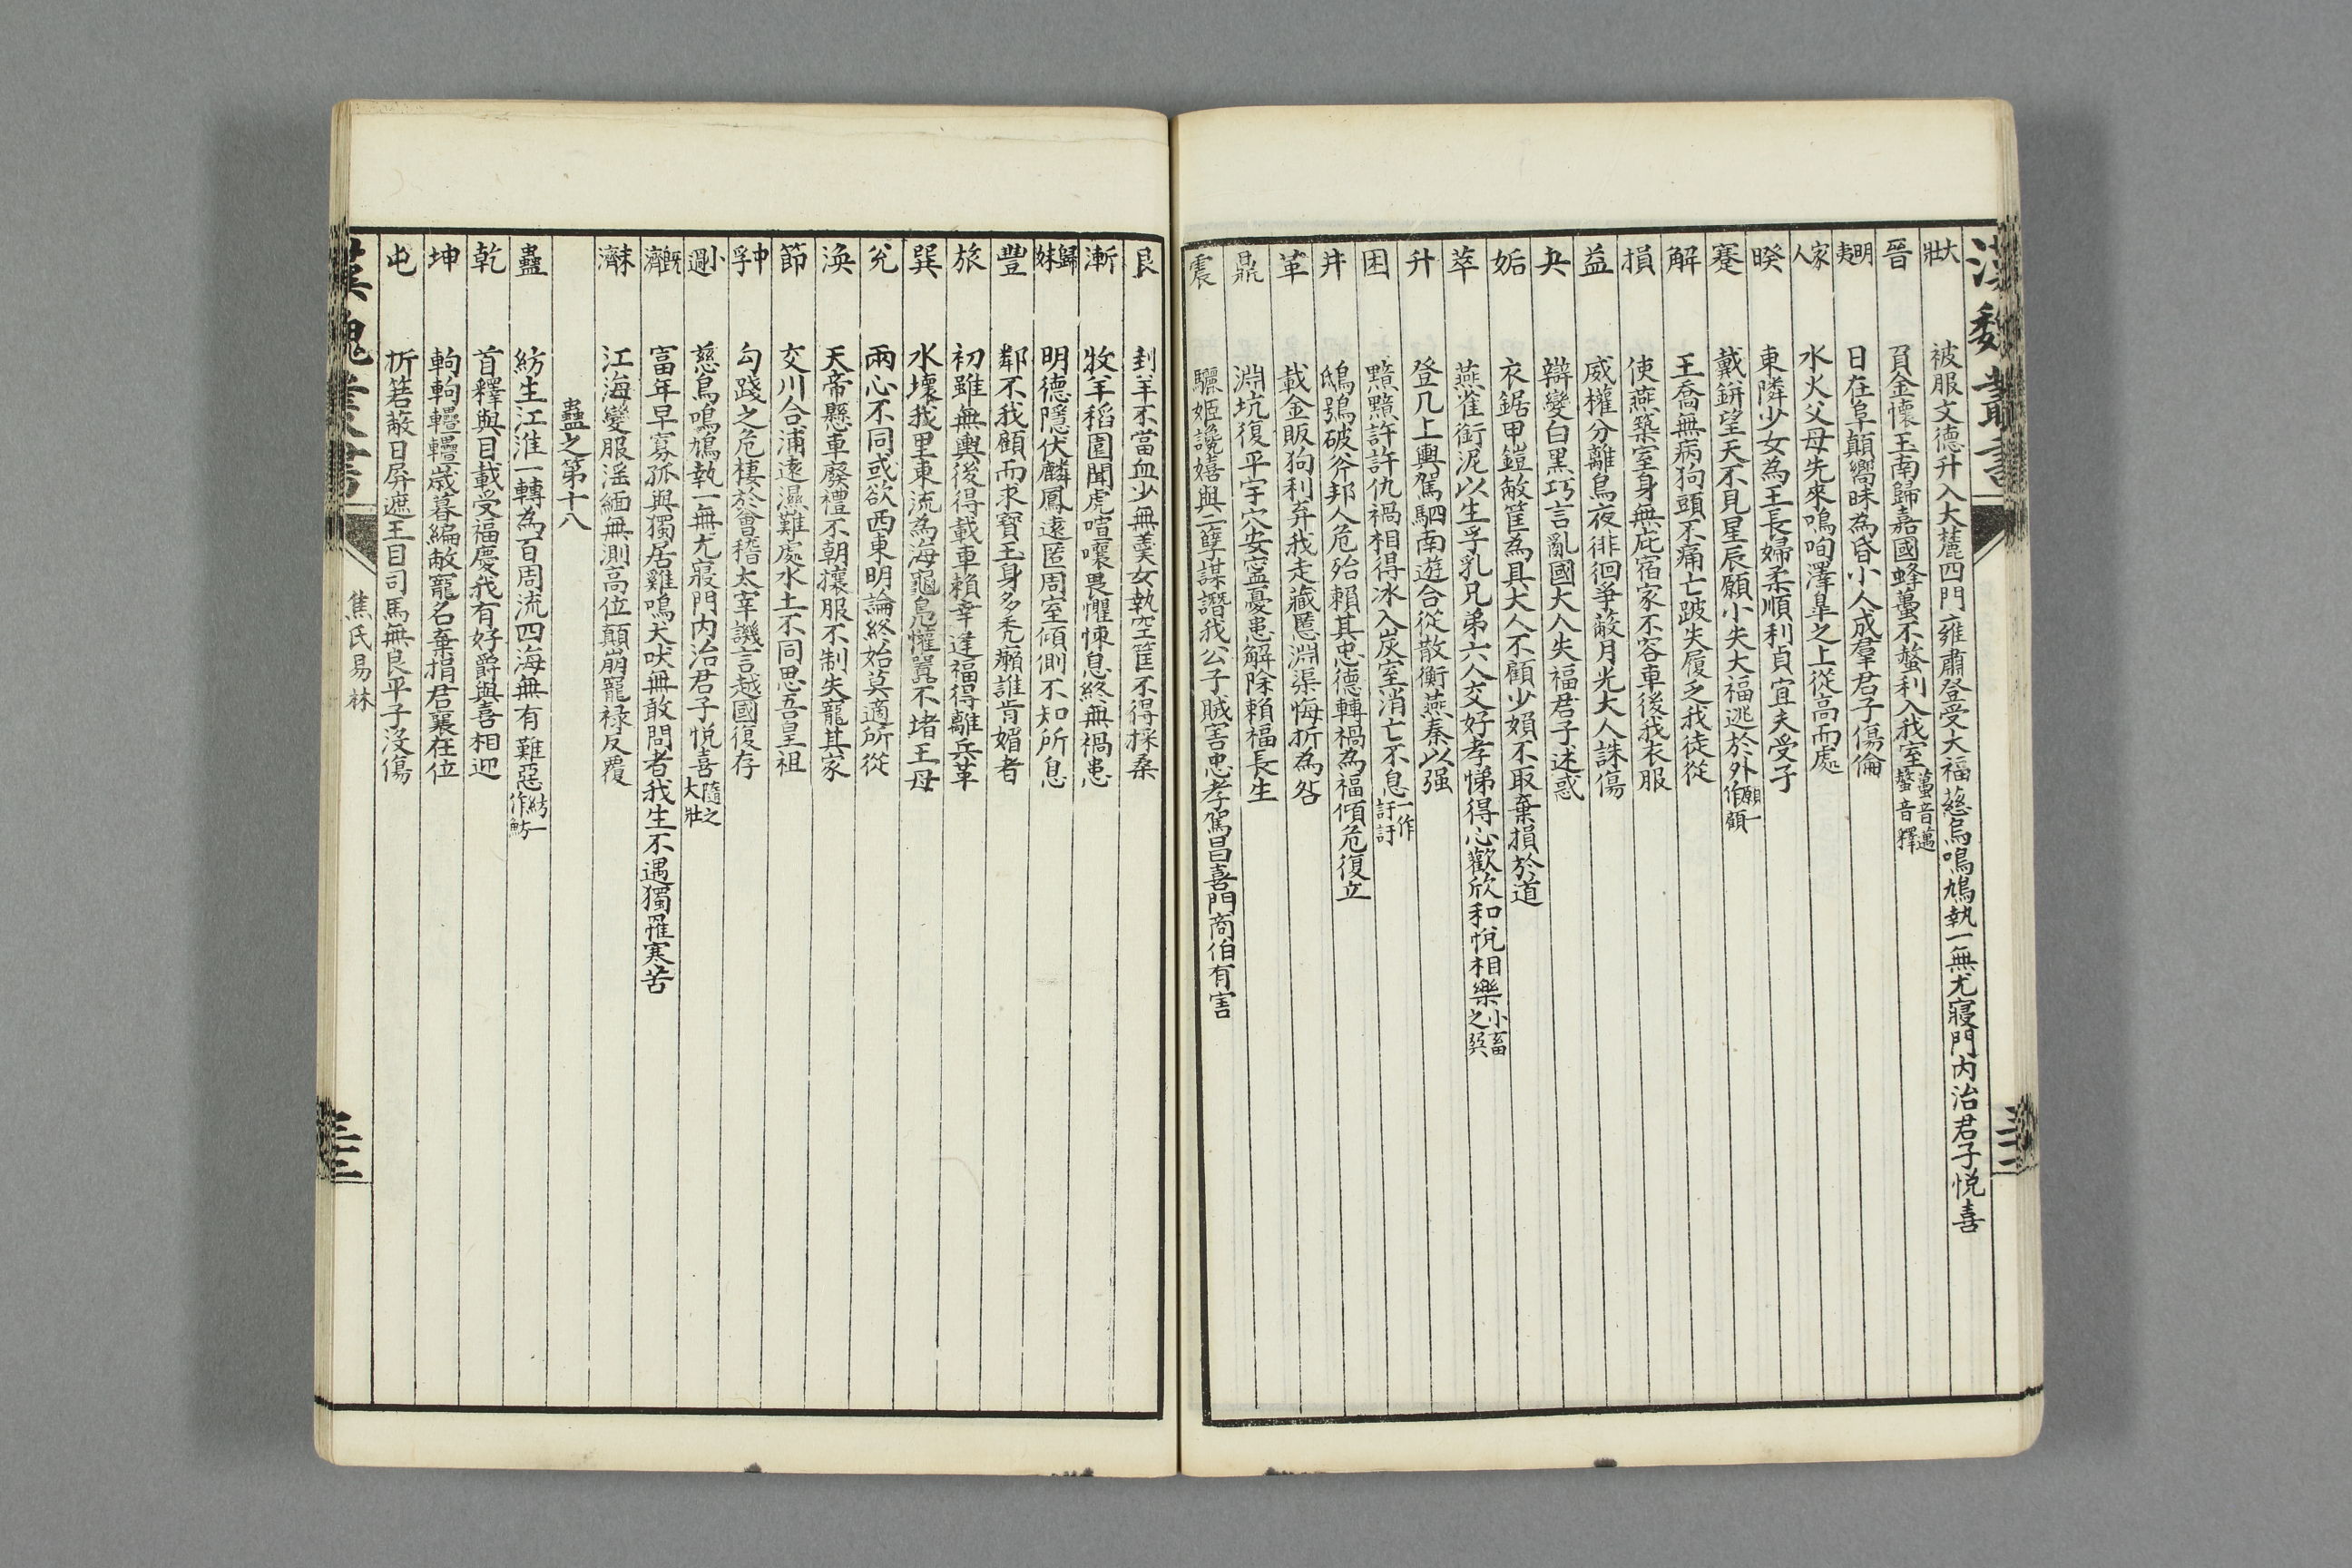 漢魏叢書
大壯 被服文德升入大麓四門雍肅登受大福慈烏鳴鳩執一無尤寢門内治君子悦喜
晉 負金懷玉南歸嘉國蜂蠆不螫利入我室蠆音邁螫音釋
明夷 日在阜顛嚮昧為昏小人成羣君子傷倫
家人 水火父母先來鳴呴澤臯之上從高而處
睽 東隣少女為王長婦柔順利貞宜夫受子
蹇 戴缾望天不見星辰願小失大福逃於外願一作顧
解 王喬無病狗頭不痛亡跛失履乏我徒從
損 使燕築室身無庇宿家不容車後我衣服
益 威權分離烏夜徘徊爭蔽月光大人誅傷
夬 辯變白黑巧言亂國大人失福君子迷惑
姤 衣鋸甲鎧敝筐為具大人不顧少婦不取棄損於道
萃 燕雀銜泥以生孚乳兄弟六人交好孝悌得心歡欣和悅相樂小畜之巽
升 登几上輿駕駟南遊合從散衡燕秦以强
困 黯黯許許仇禍相得冰入炭室消亡不息一作訏訏
井 鴟鴞破斧邦人危殆賴其忠德轉禍為福傾危復立
革 載金販狗利弃我走藏匿淵渠悔折為咎
鼎 淵坑復平宇穴安寍憂患解除賴福長生
震 驪姬讒嬉與二孽謀譖我公子賊害忠孝駕昌喜門商伯有害
三十二
艮 刲羊不當血少無羹女執空筐不得採桑
漸 牧羊稻園聞虎喧嚷畏懼悚息終無禍患
歸妹 明德隱伏麟鳳遠匿周室傾側不知所息
豐 鄰不我顧而求寶玉身多禿癩誰肯媚者
旅 初雖無輿後得載車賴幸逢福得離兵革
巽 水壞我里東流為海龜鳧懽嚚不堵王母
兌 兩心不同或欲西東明論終始莫適所從
渙 天帝懸車廢禮不朝攘服不制失寵其家
節 交川合浦遠濕難處水土不同思吾皇祖
中孚 勾踐之危棲於會稽太宰譏言越國復存
小過 慈烏鳴鳩執一無尤寢門内治君子悅喜隨之大壯
既濟 富年早寡孤與獨居雞鳴犬吠無敢問者我生不遇獨罹寒苦
未濟 江海變服淫緬無測高位顛崩寵禄反覆
蠱之第十八
蠱 紡生江淮一轉為百周流四海無有難惡紡一作魴
乾 首釋與目載受福慶我有好爵與喜相迎
坤 軥軥轠轠歲暮編敝寵名棄捐君襄在位
屯 折箬蔽日屏遮王目司馬無良平子沒傷
漢魏叢書 焦氏易林 三十三